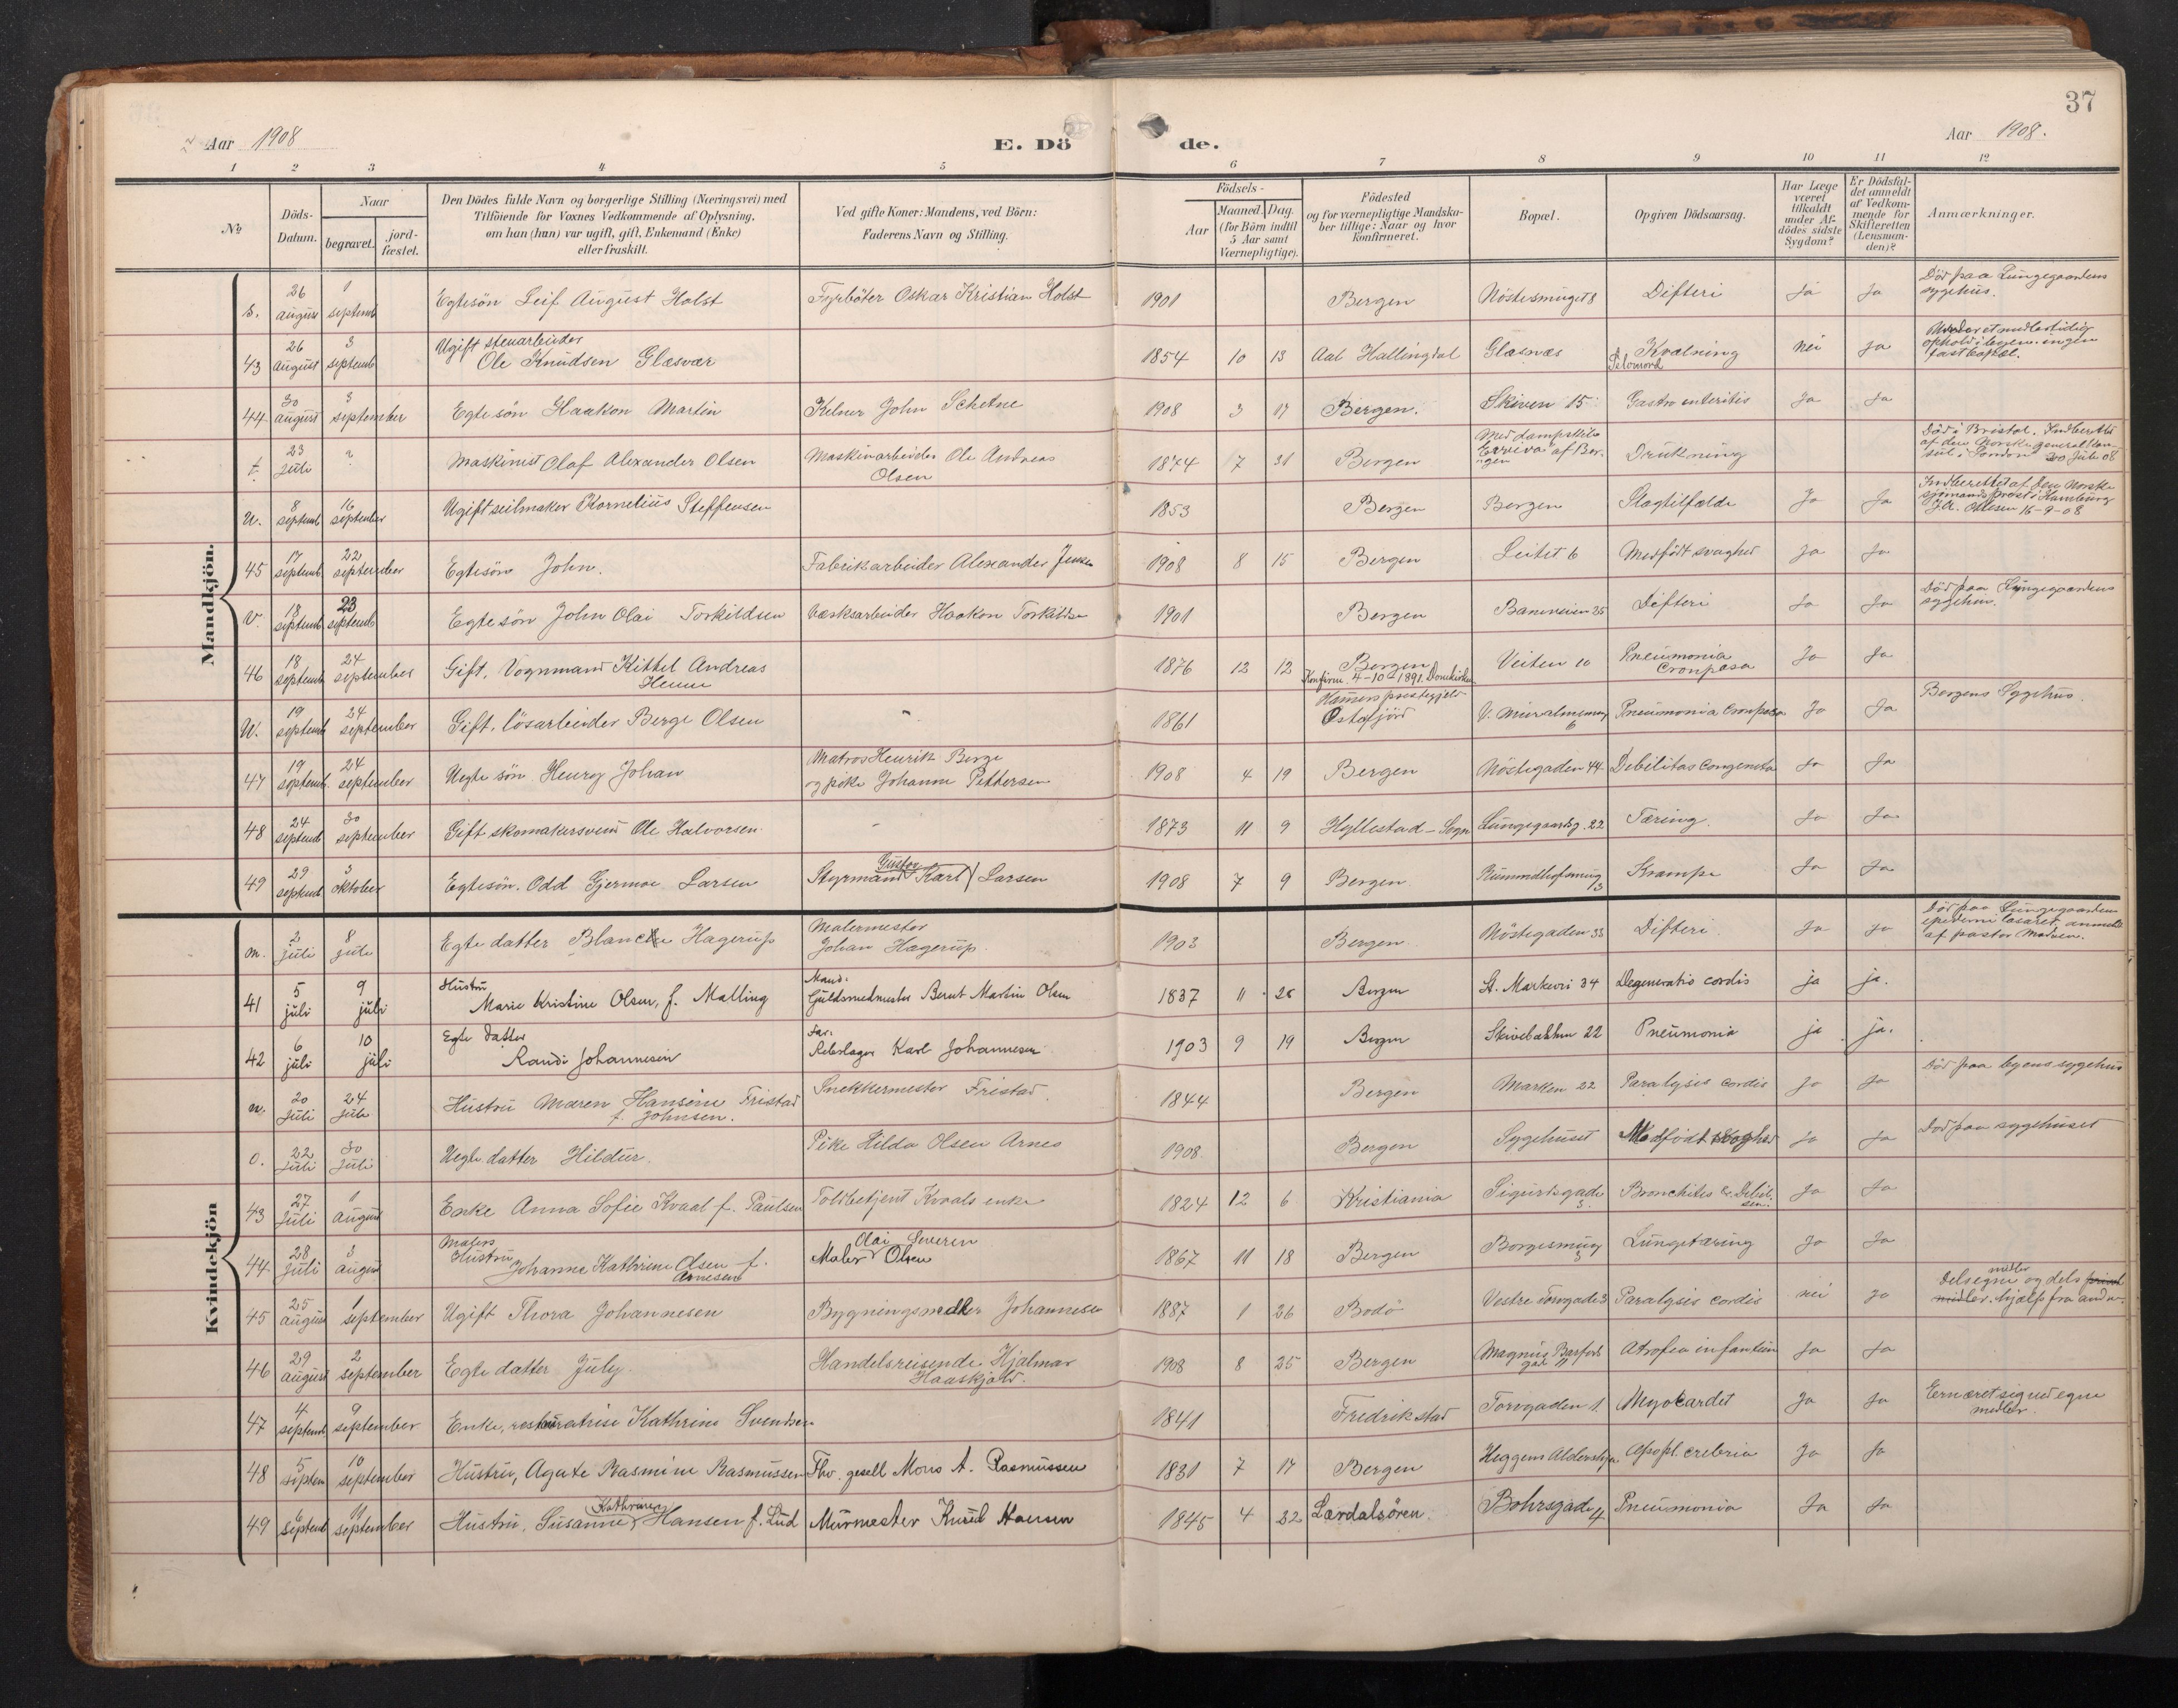 37
Aar 1908
E. Dö
de.
Aar 1908.
1 2 3 4 5 6 7 8 9 10 11 12
№
Döds-Datum.
Naar
begravet.
jord-fæstet.
Den Dödes fulde Navn og borgerlige Stilling (Næringsvei) med
Tilföiende for Voxnes Vedkommende af Oplysning,
om han (hun) var ugift, gift, Enkemand (Enke)
eller fraskilt.
Ved gifte Koner: Mandens, ved Börn:
Faderens Navn og Stilling.
Födsels-
Aar
Maaned.
Dag.
(for Börn indtil
5 Aar samt
Værnepligtige).
Födested
og for værnepligtige Mandska-
ber tillige: Naar og hvor
konfirmeret.
Bopæl.
Opgiven Dödsaarsag.
Har Læge
været
tilkaldt
under Af-
dödes sidste
Sygdom?
Er Dödsfal-
det anmeldt
af Vedkom-
mende for
Skifteretten
(Lensman-
den)?
Anmærkninger.
Mandkjön.
s. 26 august 1 septemb Egtesön Leif August Holst Fyrböter Oskar Kristian Holst 1901 Bergen Nöstesmuget 8 Difteri Ja Ja Död paa Lungegaardens sygehus.
43 26 august 3 septemb Ugift stenarbeider Ole Knudsen Glæsvær 1854 10 13 Aal Hallingdal Glæsnæs Kvælning Selvmord Nei Ja ophold i byen. ingen fast bopæl.
44 30 august 3 september Egtesön Haakon Martin Kelner John Schetne 1908 3 17 Bergen. Skiven 15 Gastro enteritis Ja Ja
t. 23 Juli ? Maskinist Olaf Alexander Olsen Maskinarbeider Ole Andreas Olsen 1874 7 31 Bergen Med dampskib af Bergen Drukning Död i Bristol. Indberettet af den Norske generalkonsul i London 30 Juli 08
u. 8 septemb 16 september Ugift seilmaker Kornelius Steffensen 1853 Bergen Bergen Slagtilfælde Ja Ja Indberettet af den Norske sjömandsprest i Hamburg 16-9-08
45 17 septemb 22 september Egtesön John. Fabrikarbeider Alexander Jensen 1908 8 15 Bergen Leitet 6 Medfödt svaghed Ja Ja
V. 18 septemb 23 septemb Egtesön John Olai Torkildsen Værksarbeider Haakon Torkildsen 1901 Bergen Baneveien 25 Difteri Ja Ja Död paa Lungegaardens sygehus.
46 18 septemb 24 september Gift. Vognmand Kittel Andreas 1876 12 12 Bergen Konfirm. 4-10-1891. Domkirken Veiten 10 Pneumonia Ja Ja
W. 19 septemb 24 september Gift. lösarbeider Berge Olsen 1861 præstegjeld V. Muralmenning 6 Pneumonia Ja Ja Bergens Sygehus.
47 19 septemb. 24 september Uegte sön Henry Johan Matros Henrik Berge og pike Johanne Pettersen 1908 4 19 Bergen Nöstegaden 44 Debilitas congenita Ja Ja
48 24 septemb 30 september Gift skomakersvend Ole Halvorsen 1873 11 9 Hyllestad - Sogn Lungegaardsg. 22 Tæring. Ja Ja
49 29 septemb 3 oktober Egtesön. Odd Gjermoe Larsen Styrmand Gustav Karl Larsen 1908 7 9 Bergen Krampe Ja Ja
Kvindekjön
m. 2 juli 8 juli Egte datter Blanche Hagerup Malermester Johan Hagerup. 1903 Bergen. Nöstegaden 33 Difteri Ja Ja Död paa Lungegaardens epedemi lasaret anmeldt af pastor
41 5 juli 9 juli Hustru Marie Kristine Olsen, f. Malling Mand: Guldsmedmester Bernt Martin Olsen 1837 11 26 Bergen St. Markevei 34 Degeneratio cordis ja ja.
42 6 juli 10 juli Egte datter Randi Johannesen Far: Rebslager Karl Johannesen 1903 9 19 Bergen Skivebakken 22 Pneumonia ja ja.
n. 20 Juli 24 Juli Hustru Maren Hansine Fristad f. Johnsen. Snekkermester Fristad. 1844 Bergen Marken 22 Paralysis cordis Ja Ja Död paa byens sygehus
o. 22 Juli 30 Juli Uegte datter Hildur. Pike Hilda Olsen Arnes 1908 Bergen Sygehuset Medfödt svaghed Ja Ja Död paa sygehuset
43 27 Juli 1 august Enke Anna Sofie Kvaal f. Paulsen Toldbetjent Kvaals enke 1824 12 6 Kristiania Sigurdsgade 3. Bronchites Ja Ja
44 28 Juli 3 august Malers Hustru Johanne Kathrine Olsen f. Arnesen Maler Olai Severin Olsen 1867 11 18 Bergen Borgesmug 3 Lungetæring Ja Ja
45 25 august 1 september Ugift Thora Johannesen Bygningssnedker Johannesen 1887 1 26 Bodö Vestre Torvgade 3 Paralysis cordis nei Ja Dels egne midler og dels hjælp fra andre.
46 29 august 2 september Egte datter July. Handelsreisende Hjalmar Haaskjold. 1908 8 25 Bergen Magnus Barfods gade 11 Atrofea infantum Ja Ja
47 4 septemb 9 september Enke, restauratrise Kathrine Svendsen 1841 Fredrikstad Torvgaden 1. Myocardit Ja Ja Ernæret sig ved egne midler.
48 5 septem 10 september Hustru, Agate Rasmine Rasmussen Thv. gesell Mons A. Rasmussen 1831 7 17 Bergen Heggens Alderdoms Apopl. Ja Ja
49 6 septemb 11 september Hustru, Susanne Kathrine Hansen f. Lud Murmester Knud Hansen 1845 4 22 Lærdalsören. Bohrsgade 4 Pneumonia Ja Ja